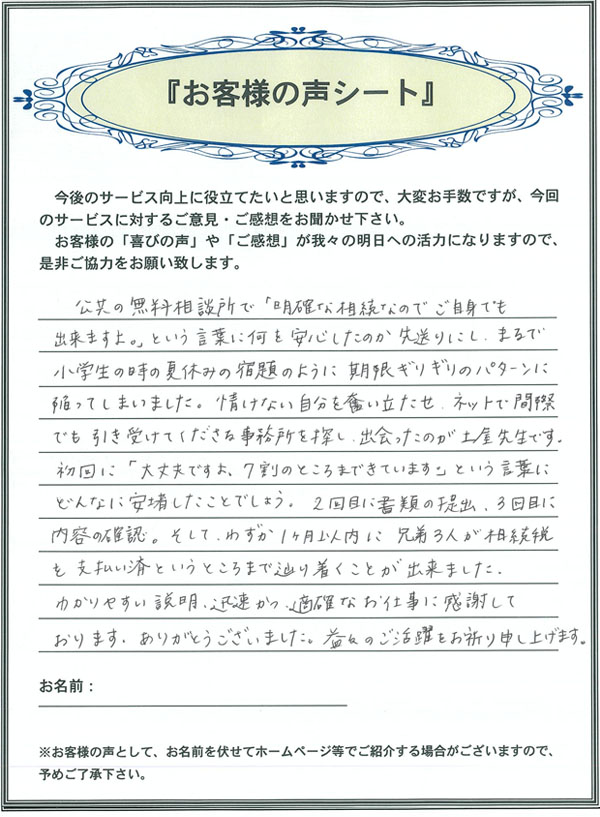 『お客様の声シート』
今後のサービス向上に役立てたいと思いますので、大変お手数ですが、今回
のサービスに対するご意見・ご感想をお聞かせ下さい。
お客様の「喜びの声」や「ご感想」が我々の明日への活力になりますので、
是非ご協力をお願い致します。
公共の無料相談所で「明確な相続なのでご自身でも
出来ますよ。」という言葉に何を安心したのか先送りにし、まるで
小学生の時の夏休みの宿題のように期限ギリギリのパターンに
陥ってしまいました。情けない自分を奮い立たせ、ネットで間際
でも引き受けてくださる事務所を探し、出会ったのが土屋先生です。
初回に「大丈夫ですよ、7割のところまできています」という言葉に
どんなに安堵したことでしょう。2回目に書類の提出、3回目に
内容の確認。そして、わずか1ヶ月以内に兄弟3人が相続税
を支払い済というところまで辿り着くことが出来ました。
わかりやすい説明、迅速かつ、適確なお仕事に感謝して
おります。ありがとうございました。益々のご活躍をお祈り申し上げます。
お名前：
※お客様の声として、お名前を伏せてホームページ等でご紹介する場合がございますので、
予めご了承下さい。